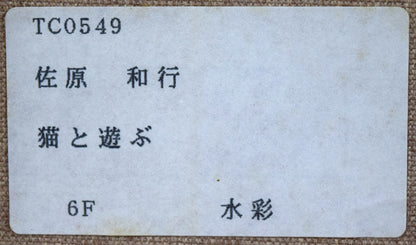 TC0549
佐原 和行
猫と遊ぶ
6F 水彩